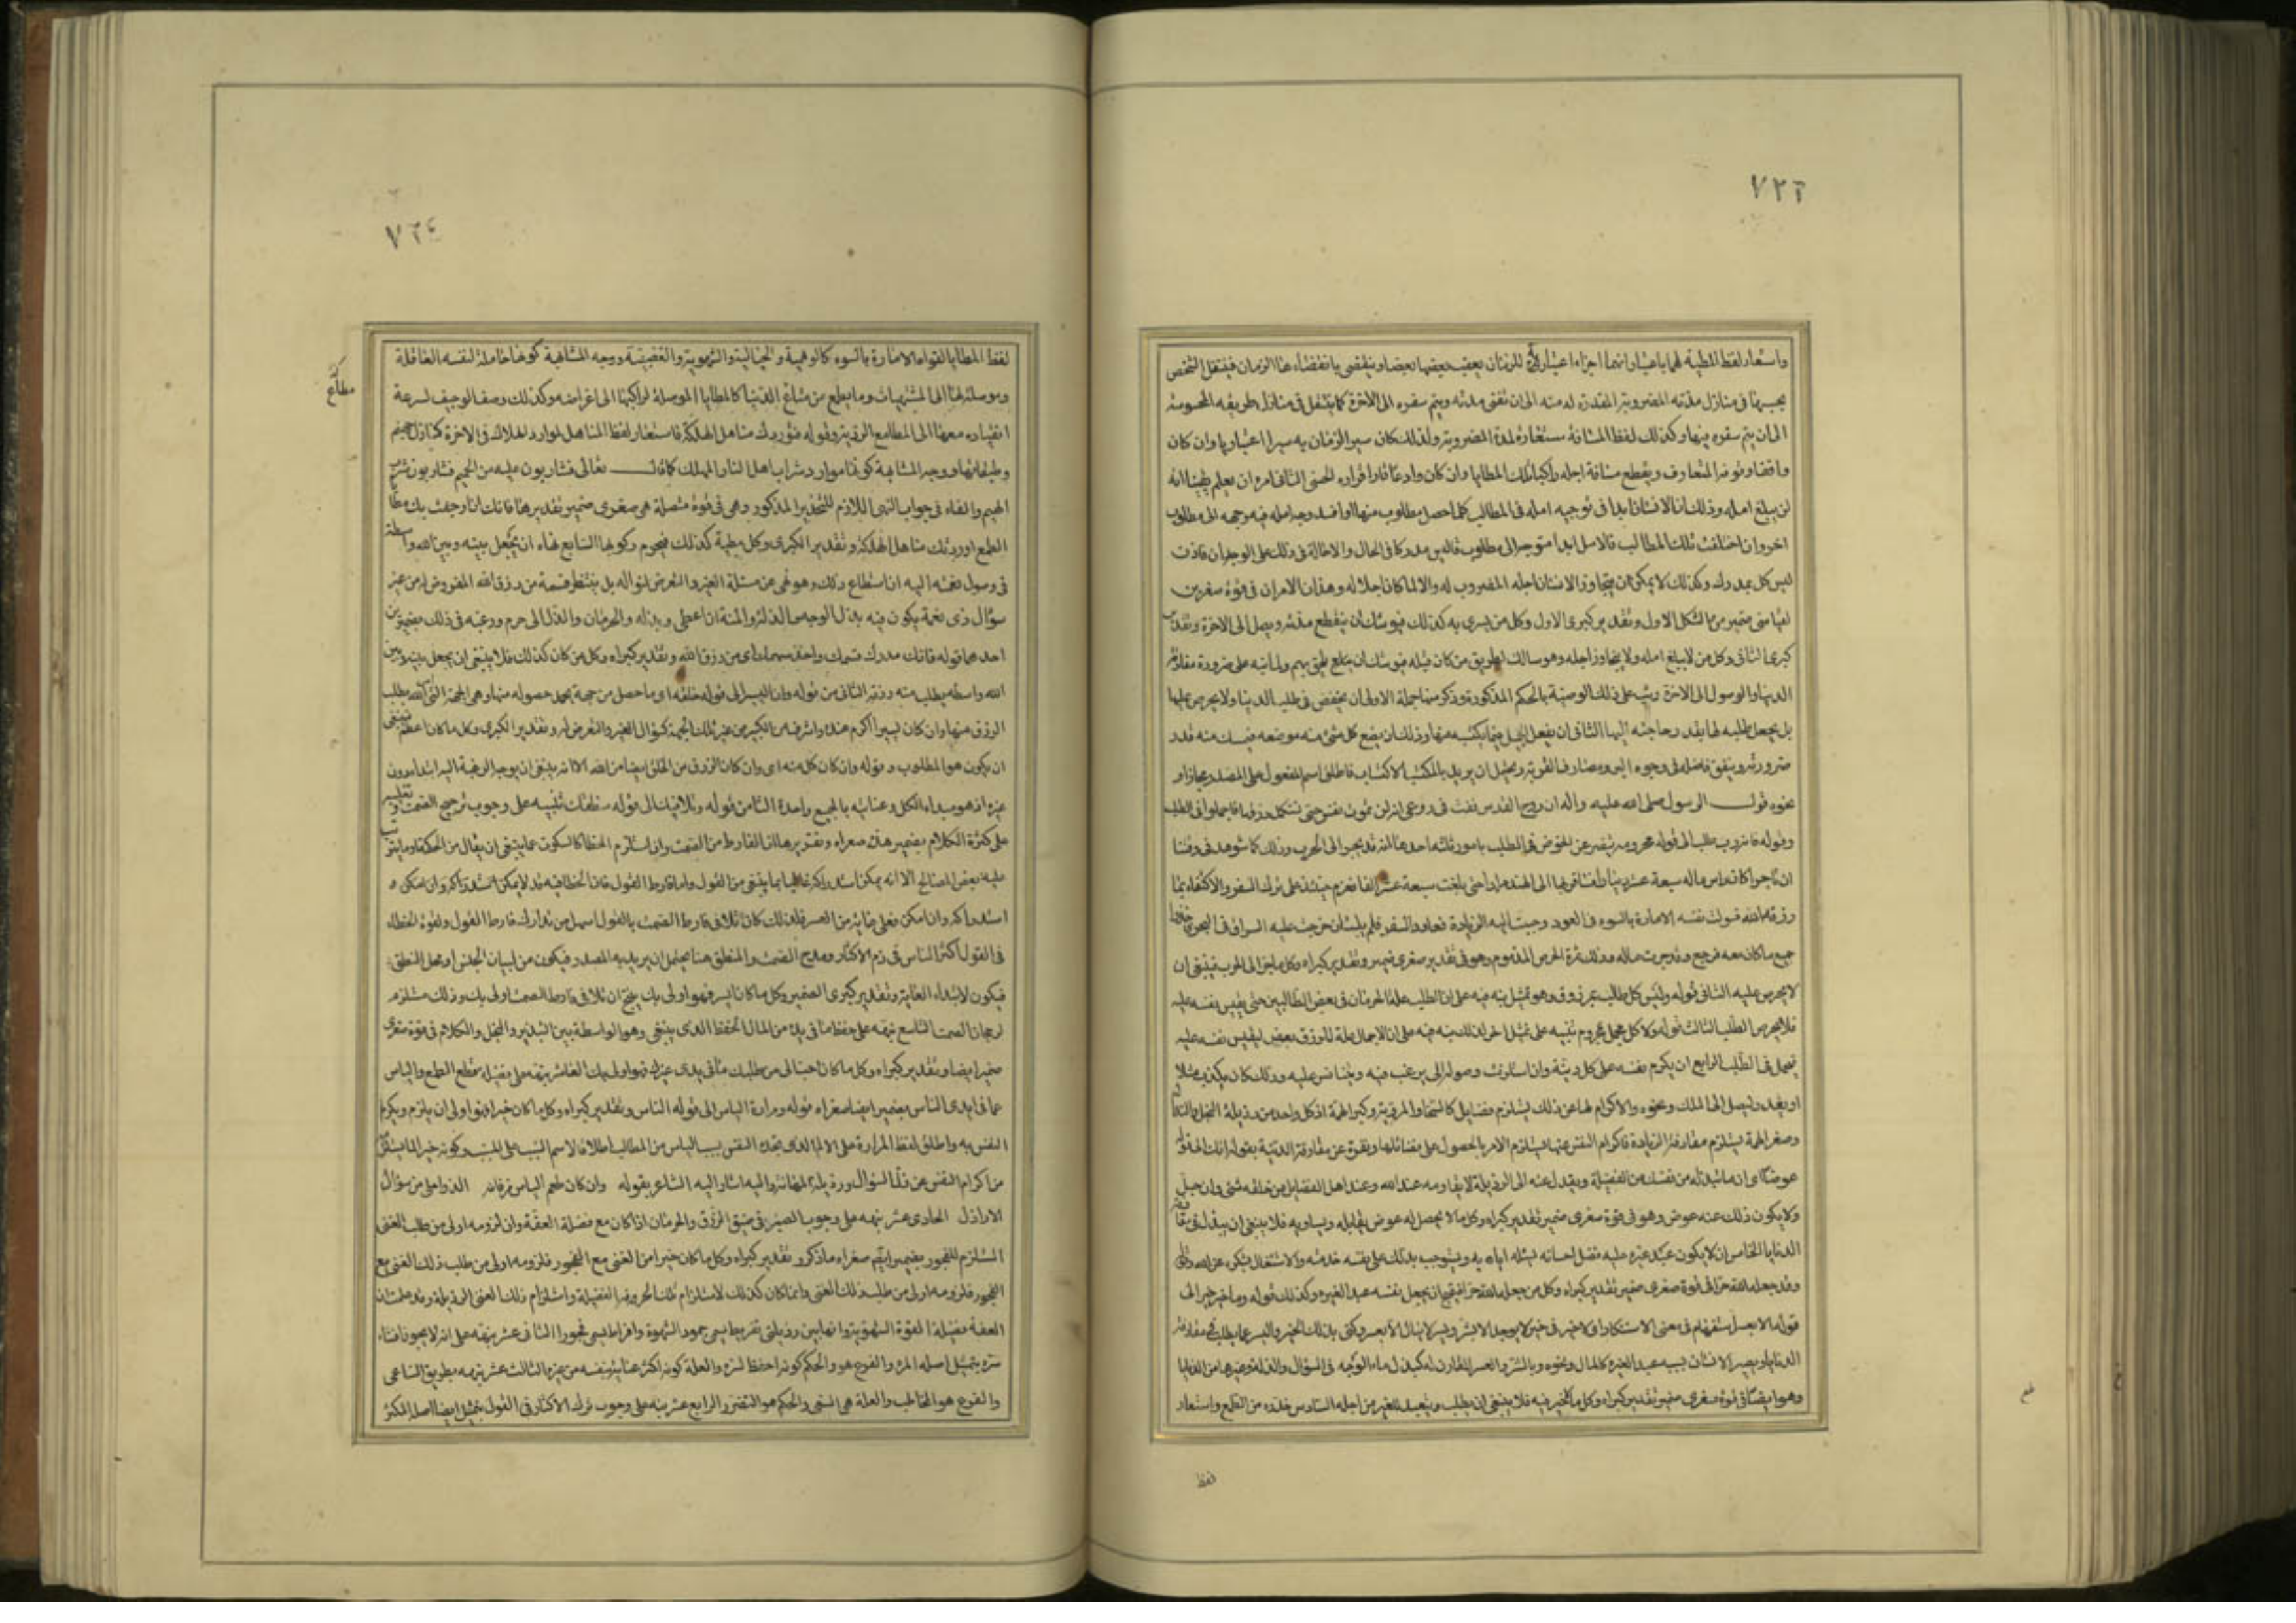 ٧٢٣
واستعار لفظ المطية لهما باعتبار انهما اجزاء اعتبارية للزمان يعقب بعضها بعضا وينقضى بانقضاء هذا الزمان فينتقل الشخص
بحسبها فى منازل مدته المضروبة المقدرة له منه الى ان تفنى مدته ويتم سفره الى الاخرة كما ينتقل فى منازل طريقه المحسوسة
الى ان يتم سفره فيها وكذلك لفظ المسافة مستعارة لمدة المضروبة ولذلك كان سير الزمان به سيرا اعتباريا وان كان
واقفا وقوفه المتعارف ويقطع مسافة اجله راكبا تلك المطايا وان كان وادعا قارا قراره الحسى الثانى امره ان يعلم يقينا انه
لن يبلغ امله وذلك ان الانسان ابدا فى توجيه امله فى المطالب كلما حصل مطلوب منها او افسد وجه امله فيه وجهه الى مطلوب
اخر وان اختلفت تلك المطالب فالامل ابدا متوجه الى مطلوب ما ليس مدركا فى الحال والاحالة فى ذلك على الوجدان فاذن
ليس كل بمدرك وكذلك لا يمكن ان يتجاوز الانسان اجله المضروب له والا لما كان اجلا له وهذان الامران فى قوة صغريين
لقياسى ضمير من الشكل الاول وتقدير كبرى الاول وكل من يسرى به كذلك فيوشك ان ينقطع مدته ويصل الى الاخرة وتقدير
كبرى الثانى وكل من لا يبلغ امله ولا يتجاوز اجله وهو سالك لطريق من كان قبله فيوشك ان يلحق بهم ولما نبه على ضرورة مفارقة
الدنيا والوصول الى الاخرة رتب على ذلك الوصية بالحكم المذكورة وذكر منها جملة الاولى ان يخفض فى طلب الدنيا ولا يحرص عليها
بل يجعل طلبه لها بقدر حاجته اليها الثانى ان يفعل الجميل فيما يكتسبه منها وذلك ان يضع كل شئ منه موضعه فيمسك منه قدر
ضرورته وينفق فاضله فى وجوه البر ومصارف القربة ويحتمل ان يريد بالمكتسب الاكتساب فاطلق اسم المفعول على المصدر مجازا و
نحوه قول الرسول صلى الله عليه واله ان روح القدس نفث فى روعى انه لن تموت نفس حتى تستكمل رزقها فاجملوا فى الطلب
وقوله فانه رب طلب الى قوله محروم تنفير عن الخوض فى الطلب بامور ثلثة احدها انه قد يجر الى الحرب وذلك كما شوهد فى وقتنا
ان تاجرا كان راس ماله سبعة عشر دينارا فسافر بها الى الهند مرارا حتى بلغت سبعة عشر الفا فعزم حينئذ على ترك السفر والاكتفاء بما
رزقه الله فسولت نفسه الامارة بالسوء فى العود وحببت اليه الزيادة فعاود السفر فلم يلبث ان خرجت عليه السراق فى البحر فاخذوا
جميع ما كان معه فرجع وقد حرب ماله وذلك ثمرة الحرص المذموم وهو فى تقدير صغرى ضمير وتقدير كبراه وكل ما جر الى الحرب فينبغى ان
لا يحرص عليه الثانى قوله وليس كل طالب بمرزوق وهو تمثيل نبه فيه على ان الطلب علة الحرمان فى بعض الطالبين حتى يقيس نفسه عليه
فلا يحرص الطلب الثالث قوله ولا كل مجمل محروم نبه على تمثيل اخر كذلك نبه فيه على ان الاجمال علة للرزق بعض ليقيس نفسه عليه
فيجمل فى الطلب الرابع ان يكرم نفسه على كل دنية وان استلزمت وصوله الى ما يرغب فيه ويتنافس عليه وذلك كان يكذب مثلا
او يغدر ليصل الى الملك ونحوه والاكرام لها عن ذلك يستلزم فضايل كالسخا والمروة وكبر الهمة اذ كل واحد من رذيلة البخل والنذالة
وصغر الهمة يستلزم مفارقة الزيادة فاكرام النفس عنها يستلزم الامر بالحصول على فضائلها ونفره عن مقارفة الدنية بقوله انك الى قوله
عوضا اى ان ما تبذله من نفسك من الفضيلة وتعدل عنه الى الرذيلة لا يقاومه عند الله وعند اهل الفضايل من خلقه شئ وان جل
ولا يكون ذلك عنه عوض وهو فى قوة صغرى ضمير تقدير كبراه وكل ما لا يحصل له عوض يقابله ويساويه فلا ينبغى ان يبذل فى مقارفة
الدنايا الخامس ان لا يكون عبد غيره عليه فضل احسانه ليسئله اياه به ويستوجب بذلك على نفسه خدمته والاشتغال بشكره عن الله تعالى
وقد جعله الله حرا فى قوة صغرى ضمير تقدير كبراه وكل من جعله الله حرا فيقبح ان يجعل نفسه عبدا لغيره وكذلك قوله وما خير خير الى
قوله الا بعسر استفهام فى معنى الاستنكار اى لا خير فى خير لا يوجد الا بشر ويسر لا ينال الا بعسر وكنى بذلك الخير واليسر عما يطلب فى مقارفة
الدنايا ويصير الانسان بسببه عبدا لغيره كالمال ونحوه وبالشر والعسر المقارن له كبذل ماء الوجه فى السؤال والذلة وغيرها من الدنايا
وهو ايضا فى قوة صغرى ضمير تقدير كبراه وكل ما لا خير فيه فلا ينبغى ان يطلب ويتعبد للغير من اجله السادس حذره من الطمع واستعار
لفظ
٧٢٤
لفظ المطايا للقوى الامارة بالسوء كالوهمية والخيالية والشهوية والغضبية ووجه المشابهة كونها حاملة لنفسه العاقلة
وموصلة لها الى المشتهيات وما يطمع من متاع الدنيا كالمطايا الموصلة لراكبها الى اغراضه وكذلك وصف الوجيف لسرعة
انقياده معها الى المطامع الردية وقوله فتوردك مناهل الهلكة فاستعار لفظ المناهل لموارد الهلاك فى الاخرة كمنازل جهنم
وطبقاتها ووجه المشابهة كونها موارد شراب اهل النار المهلك كما قال تعالى فشاربون عليه من الحميم فشاربون شرب
الهيم والفاء فى جواب النهى اللازم للتحذير المذكور وهى فى قوة متصلة هى صغرى ضمير تقديرها فانك ان اوجفت بك مطايا
الطمع اوردتك مناهل الهلكة وتقدير الكبرى وكل مطية كذلك فيحرم ركوبها السابع نهاه ان يجعل بينه وبين الله واسطة
فى وصول نعمته اليه ان استطاع ذلك وهو نهى عن مسئلة الغير والتعرض لنواله بل ينتظر قسمه من رزق الله المفروض له من غير
سؤال ذى نعمة يكون فيه بذل الوجه والذلة والمنة ان اعطى وبذله والحرمان والذل ان حرم ورغبه فى ذلك بضميرين
احدهما قوله فانك مدرك قسمك واخذ سهمك اى من رزق الله وتقدير كبراه وكل من كان كذلك فلا ينبغى ان يجعل بينه وبين
الله واسطة يطلب منه رزقه الثانى من قوله وان اليسير الى قوله خلقه اى ما حصل من جهة يحمد حصوله منها وهى الجهة التى امر الله بطلب
الرزق منها وان كان يسيرا اكرم عنده واشرف من الكثير من غير تلك الجهة كسؤال الغير والتعرض له وتقدير الكبرى وكل ما كان اعظم فينبغى
ان يكون هو المطلوب وقوله وان كان كل منه اى وان كان الرزق من الخلق ايضا من الله الا انه ينبغى ان يوجه الرغبة اليه ابتداء دون
غيره اذ هو مبداء الكل وعنايته بالجميع واحدة الثامن قوله وتلافيك الى قوله منطقك تنبيه على وجوب ترجيح الصمت وتغليبه
على كثرة الكلام بضمير هذه صغراه وتقريرها ان الفارط من الصمت وان استلزم الخطا كالسكوت عما ينبغى ان يقال من الحكمة وما يترتب
عليه بعض المصالح الا انه يمكن استدراكه غالبا بما ينبغى من القول واما فارط القول فان الخطا فيه قد لا يمكن استدراكه وان امكن و
استدراكه وان امكن فعلى غاية من العسر فلذلك كان تلافى فارط الصمت بالقول اسهل من تدارك فارط القول ولقوة الخطاء
فى القول اكثر الناس فى ذم الاكثار ومدح الصمت والمنطق هنا يحتمل ان يريد به المصدر فيكون من لبيان الجنس او محل النطق
فيكون لابتداء الغاية وتقدير كبرى الضمير وكل ما كان ايسر فهو اولى بك ينتج ان تلافى فارط الصمت اولى بك وذلك مستلزم
لرجحان الصمت التاسع نبهه على حفظ ما فى يده من المال الحفظ الذى ينبغى وهو الواسطة بين التبذير والبخل والكلام فى قوة صغرى
ضمير ايضا وتقدير كبراه وكل ما كان احب الى من طلبك ما فى يدى غيرك فهو اولى بك العاشر نبهه على فضيلة قطع الطمع والياس
عما فى ايدى الناس بضمير ايضا صغراه قوله ومرارة الياس الى قوله الناس وتقدير كبراه وكل ما كان خيرا فهو اولى ان يلزم ويكرم
النفس به واطلق لفظ المرارة على الالم الذى تجده النفس بسبب الياس من المطالب اطلاقا لاسم السبب على المسبب وكونه خيرا لما يستلزم
من اكرام النفس عن ذل السؤال ورذيلة المهانة واليه اشار اليه الشاعر بقوله وان كان طعم الياس مرا فانه الذ واحلى من سؤال
الاراذل الحادى عشر نبهه على وجوب الصبر فى ضيق الرزق والحرمان اذا كان مع فضيلة العفة وان لزومه اولى من طلب الغنى
المستلزم للفجور بضمير ايضا صغراه ما ذكر وتقدير كبراه وكل ما كان خيرا من الغنى مع الفجور فلزومه اولى من طلب ذلك الغنى مع
الفجور فلزومه اولى من طلب ذلك الغنى وانما كان كذلك لاستلزام تلك الحرفة الفضيلة واستلزام ذلك الغنى الرذيلة وقد علمت ان
العفة فضيلة القوة الشهوية وانها بين رذيلتى تفريط يسمى جمود الشهوة وافراط يسمى فجورا الثانى عشر نبهه على انه لا يجوز افشاء
سره بتمثيل اصله المرء والفرع هو والحكم كونه احفظ لسره والعلة كونه اكثر عناية بنفسه من غيره الثالث عشر نبهه بطريق الساعى
والفرع هو المخاطب والعلة هى السعى والحكم هو التضرر الرابع عشر نبه على وجوب ترك الاكثار فى القول بتمثيل ايضا اصله المكثر